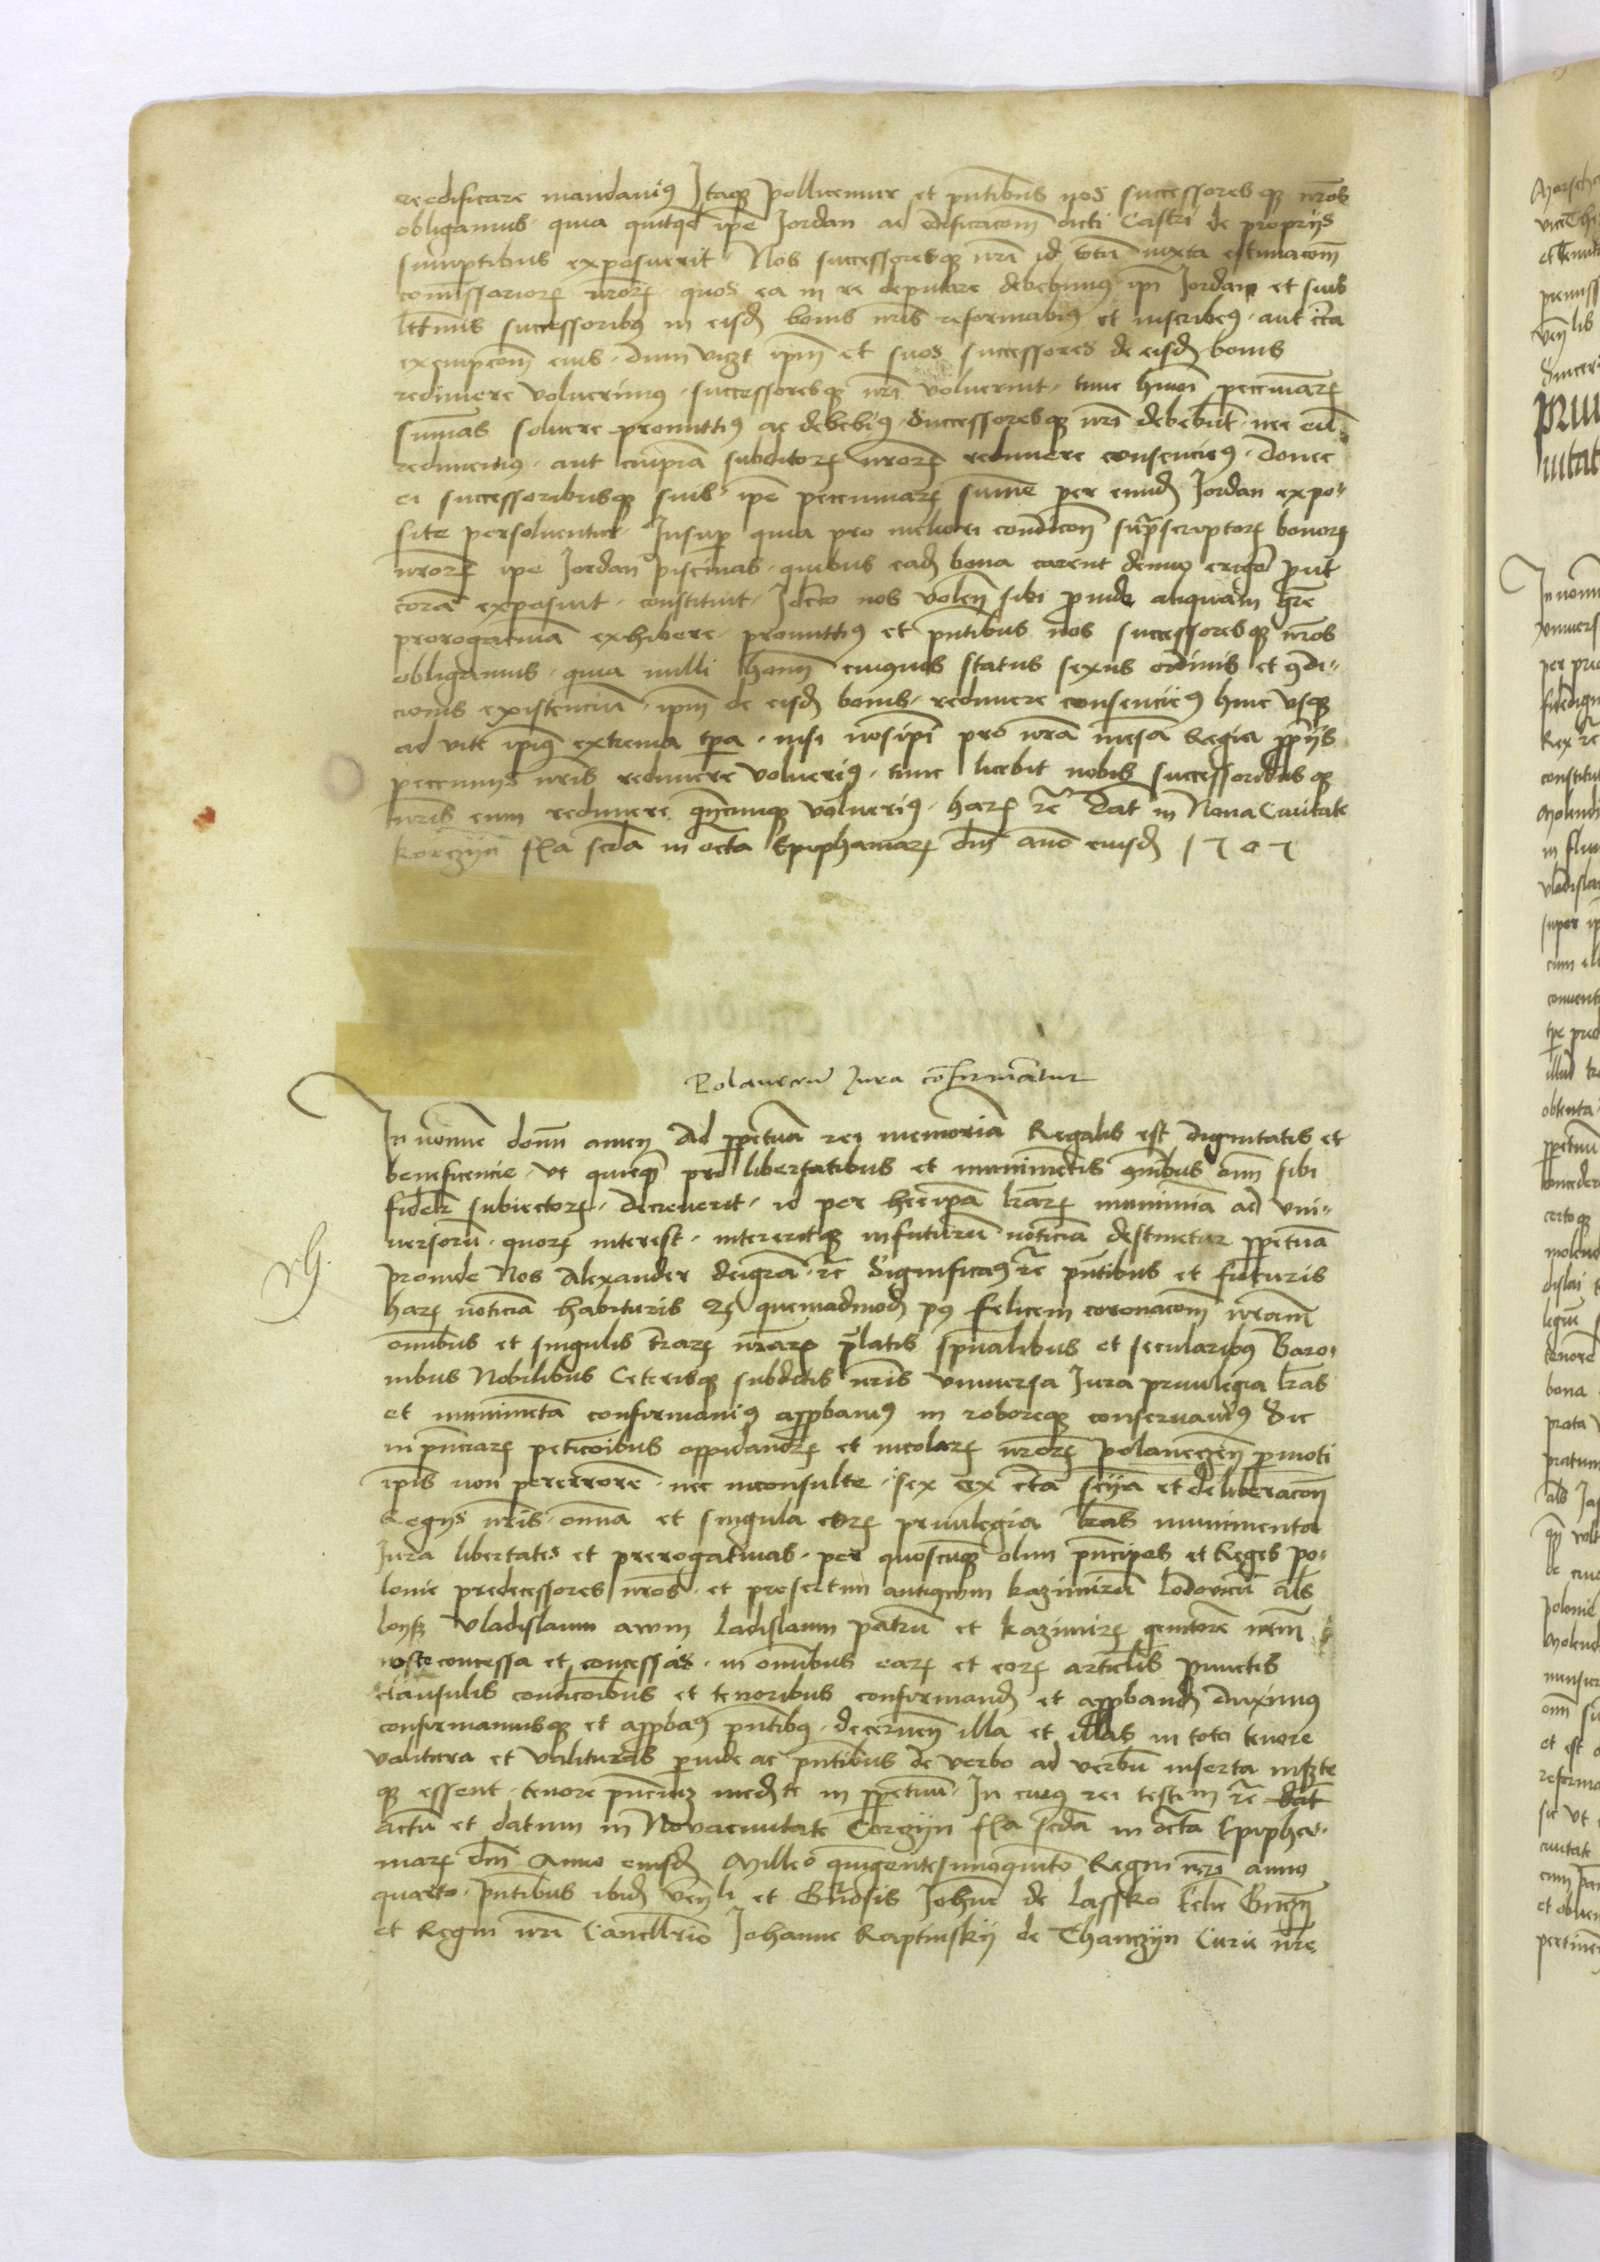 reedificare mandavimus Itaque pollicemur et pntibus nos successoresque nros
obligamus quia quitqd ipe Jordan ad edificacom dicti Castri de proprijs
sumptibus exposuerit Nos successoresque nri id totum iuxta estimacom
comissariorum nrorum quos ea in re deputare debebimus ipi Jordan et suis
lttimis successoribus in eisdem bonis nris reformabimus et inscribemus aut circa
exempcom eius dum vizt ipm et suos successores de eisdem bonis
redimere voluerimus successoresque nri voluerint tunc hmoi pecuniarum
summas solvere promittimus ac debebimus Successoresque nri debebunt nec eum
redimemus aut cuipiam subditorum nrorum redimere consenciemus donec
ei successoribusque suis ipe pecuniarum summe per eundem Jordan expo-
site persolventur Insuper quia pro meliori condicon suprascriptorum bonorum
nrorum ipe Jordan piscinas quibus eadem bona carent denuo erigere prout
coram exposuit constituit Idcirco nos volen sibi proinde aliquam gre
prorogativam exhibere promittimus et pntibus nos successoresque nros
obligamus quia nulli homi cuiusvis status sexus ordinis et condi-
cionis existencium ipm de eisdem bonis redimere consenciemus hinc usque
ad vite ipius extrema tpa nisi nosipi pro nra mensa Regia propriis
pecuniis nris redimere voluerimus tunc licebit nobis successoribusque
nris eum redimere quandocunque voluerimus harum rc Dat in Nova Civitate
Korczijn fla scda in octa Epiphaniarum dni anno eiusdem 1505
Polanecen Jura confirmantur
In nomine domi amen Ad perpetuam rei memoriam Regalis est dignitatis et
beneficencie ut quicquid pro libertatibus et munimentis omnibus omi sibi
fidelium subiectorum decreverit id per hec ipa lrarum munimina ad uni-
versorum quorum interest intereritque in futurum noticiam destinetur perpetuam
proinde Nos Alexander dei gra rc Significamus rc pntibus et futuris
harum noticiam habituris Quemadmodum post felicem coronacom nram
omnibus et singulis terrarum nrarum prelatis spualibus et secularibus Baro-
nibus Nobilibus Ceterisque subditis nris universa Jura privilegia lras
et munimenta confirmavimus approbavimus in roboreque conservavimus Sic
in presenciarum peticoibus oppidanorum et incolarum nrorum polanecen permoti
ipis non per errorem nec inconsulte sex ex certa scija et deliberacon
Regijs nris omnia et singula eorum privilegia lras munimenta
Jura libertates et prerogativas per quoscunque olim principes et Reges po-
lonie predecessores nros et presertim antiquum kazimirum Lodovicum als
loysz Vladislaum avum Ladislaum patruum et kazimirum genitorem nrm
iuste concessa et concessas in omnibus earum et eorum articulis punctis
clausulis condicoibus et tenoribus confirmand et approband duximus
confirmamusque et approbamus pntibus decernen illa et illas in toto tenore
valitura et valituras perinde ac pntibus de verbo ad verbum inserta inserte
que essent tenore pncium mediante in perpetuum In cuius rei testim rc dat
Actum et datum in Nova civitate Corczijn fla scda in octa Epipha-
niarum dni Anno eiusdem Milleo quingentesimoquinto Regni nri anno
quarto pntibus ibidem Venli et Gnrosis Johne de Lassko Eclie Gnezn
et Regni nri Cancellrio Johanne Raptinskij de Thanczijn Curie nre